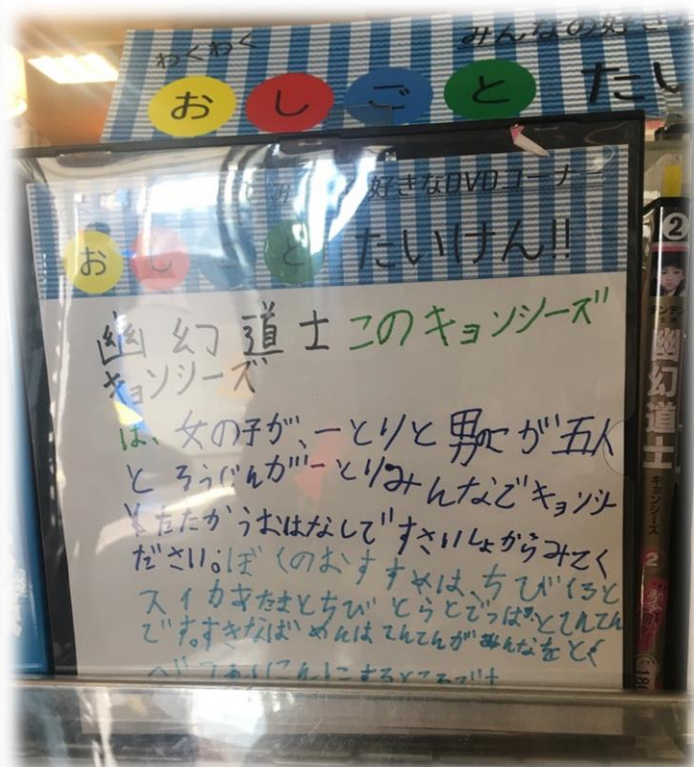 わくわく
みんなの好き
おしごと たい
好きなDVDコーナー
おしごと たいけん!!
幽幻道士 このキョンシーズ
キョンシーズ
は、女の子が、一とりと男のこが五人
と ろうじんが一とりみんなでキョンシー
とたたかうおはなしですさいしょからみてく
ださい。ぼくのおすすめは、ちびくろと
スイカあたまとちびとらとでっぱとてんてん
です。すきなばめんはてんてんがみんなをとく
するところです
2
幽幻道士
キョンシーズ
2